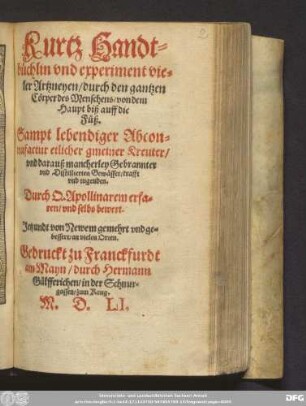 Kurtz Handt-
büchlin vnd experiment vie-
ler Artzneyen / durch den gantzen
Cörper des Menschens / von dem
Haupt biß auff die
Füß.
Sampt lebendiger Abcon-
trafactur etlicher gmeiner Kreuter /
vnd darauß mancherley Gebrannter
vnd Distillierten Gewässer / krafft
vnd tugenden.
Durch Q. Apollinarem erfa-
ren / vnd selbs bewert.
Jetzundt von Newem gemehrt vnd ge-
bessert / an vielen Orten.
Gedruckt zu Franckfurdt
am Mayn / durch Hermann
Gülfferichen / in der Schnur-
gassen / zum Krug.
M. D. LI.
DFG